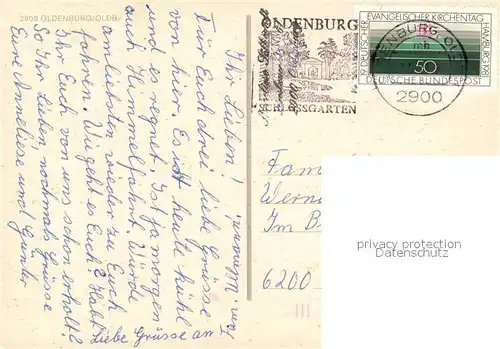 2900 OLDENBURG/OLDB.
Ihr Lieben!
Euch drei liebe Grüsse
von hier. Es ist heute kühl
und es regnet. Ist ja morgen
auch Himmelfahrt. Würde
am liebsten wieder zu Euch
fahren. Wie geht es Euch? Habt
Ihr Euch von uns schon erholt?
So Ihr Lieben, nochmals Grüsse
Eure Anneliese und Günter
Liebe Grüsse an
OLDENBURG
SCHLOSSGARTEN
19. DEUTSCHER EVANGELISCHER KIRCHENTAG HAMBURG 1981
50
DEUTSCHE BUNDESPOST
OLDENBURG, OLDB
mh
2900
Fam
Wern
Im B
6200
privacy protection
Datenschutz